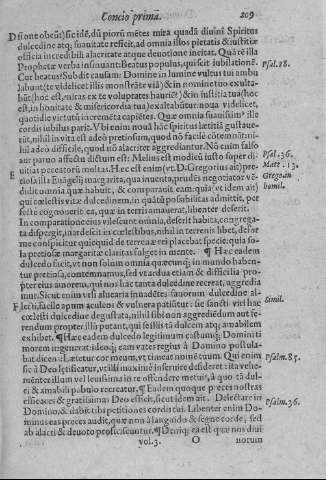 Concio prima. 209
D si one obeũt) fic idẽ, dũ piorũ mẽtes mira quadã diuini Spiritus
dulcedine atq; suauitate reficit, ad omnia illos pietatis & iustitiæ
officia incredibili alacritate atque deuotione incitat. Qua re illa
Prophetæ verba insinuant: Beatus populus, qui scit iubilationẽ.
Cur beatus? Subdit causam: Domine in lumine vultus tui ambu
labunt (te videlicet illis monstrãte viã) & in nomine tuo exulta-
bũt (hoc est, nã ex te voluptates hauriẽt) & in iustitia tua (hoc
est, in bonitate & misericordia tua) exaltabũtur: noua videlicet,
quotidie virtutũ incremẽta capiẽtes. Quæ omnia suauissim° ille
cordis iubilus parit. Vbi enim noua hãc spiritus lætitiã gustaue-
rũt, nihil in vita est adeò pretiosum, quod nõ facilè cõtemnãt: ni-
hil adeò difficile, quod nõ alacriter aggrediantur. Nõ enim falsò
aut paruo affectu dictum est: Melius est modicũ iusto super di-
uitias peccatorũ moltas. Hæc est enim (vt D. Gregorius ait) pre-
E tiosa illa Euãgelij margarita, qua inuẽta, prudẽs negotiator vẽ-
didit omnia quæ habuit, & comparauit eam: quia (vt idem ait)
qui cœlestis vitæ dulcedinem, in quãtũ possibilitas admittit, per
fectè cognouerit, ea, quæ in terris amauerat, libenter deserit.
In comparatione eius vilescunt omnia, deserit habita, congrega-
ta dispergit, inardescit in cœlestibus, nihil in terrenis libet, defor
me conspicitur quicquid de terrenæ rei placebat specie: quia so-
la pretiosæ margaritæ claritas fulget in mente. ¶ Hac eadem
dulcedine fit, vt non solum omnia quæcunq; in mundo haben-
tur pretiosa, contemnamus, sed vt ardua etiam & difficilia pro-
pter eius amorem, qui nos hac tanta dulcedine recreat, aggredia
mur. Sicut enim vrsi aluearia inuadẽtes fauorum dulcedine al-
F lecti, facilè apum aculeos & vulnera patiũtur: sic sancti viri hac
cœlesti dulcedine degustata, nihil sibi non aggrediẽdum aut fe-
rendum propter illũ putant, qui se illis tã dulcem atq; amabilem
exhibet. ¶ Hæc eadem dulcedo legitimum castumq; Domini ti
morem ingenerat: ideoq; eam vates regius à Domino postula-
bat dicens: Lætetur cor meum, vt timeat nomẽ tuum. Qui enim
sic à Deo lętificatur, vt illi maximè inseruire desideret: ita vehe-
menter illum vel leuissima in re offendere metuit, à quo tã dul-
ci & amabili pabulo recreatur. ¶ Eadem quoque preces nostras
efficaces & gratissimas Deo efficit, sicut idem ait. Delectare in
Domino, & dabit tibi petitiones cordis tui. Libenter enim Do-
minus eas preces audit, quæ non à languido & segni corde, sed
ab alacri & deuoto proficiscuntur. ¶ Deniq; ea est quæ nos diui
vol. 3. O norum
Psal. 18.
Psal. 36.
Matt. 13.
Grego. in
homil.
Simil.
Psalm. 85.
Psalm. 36.